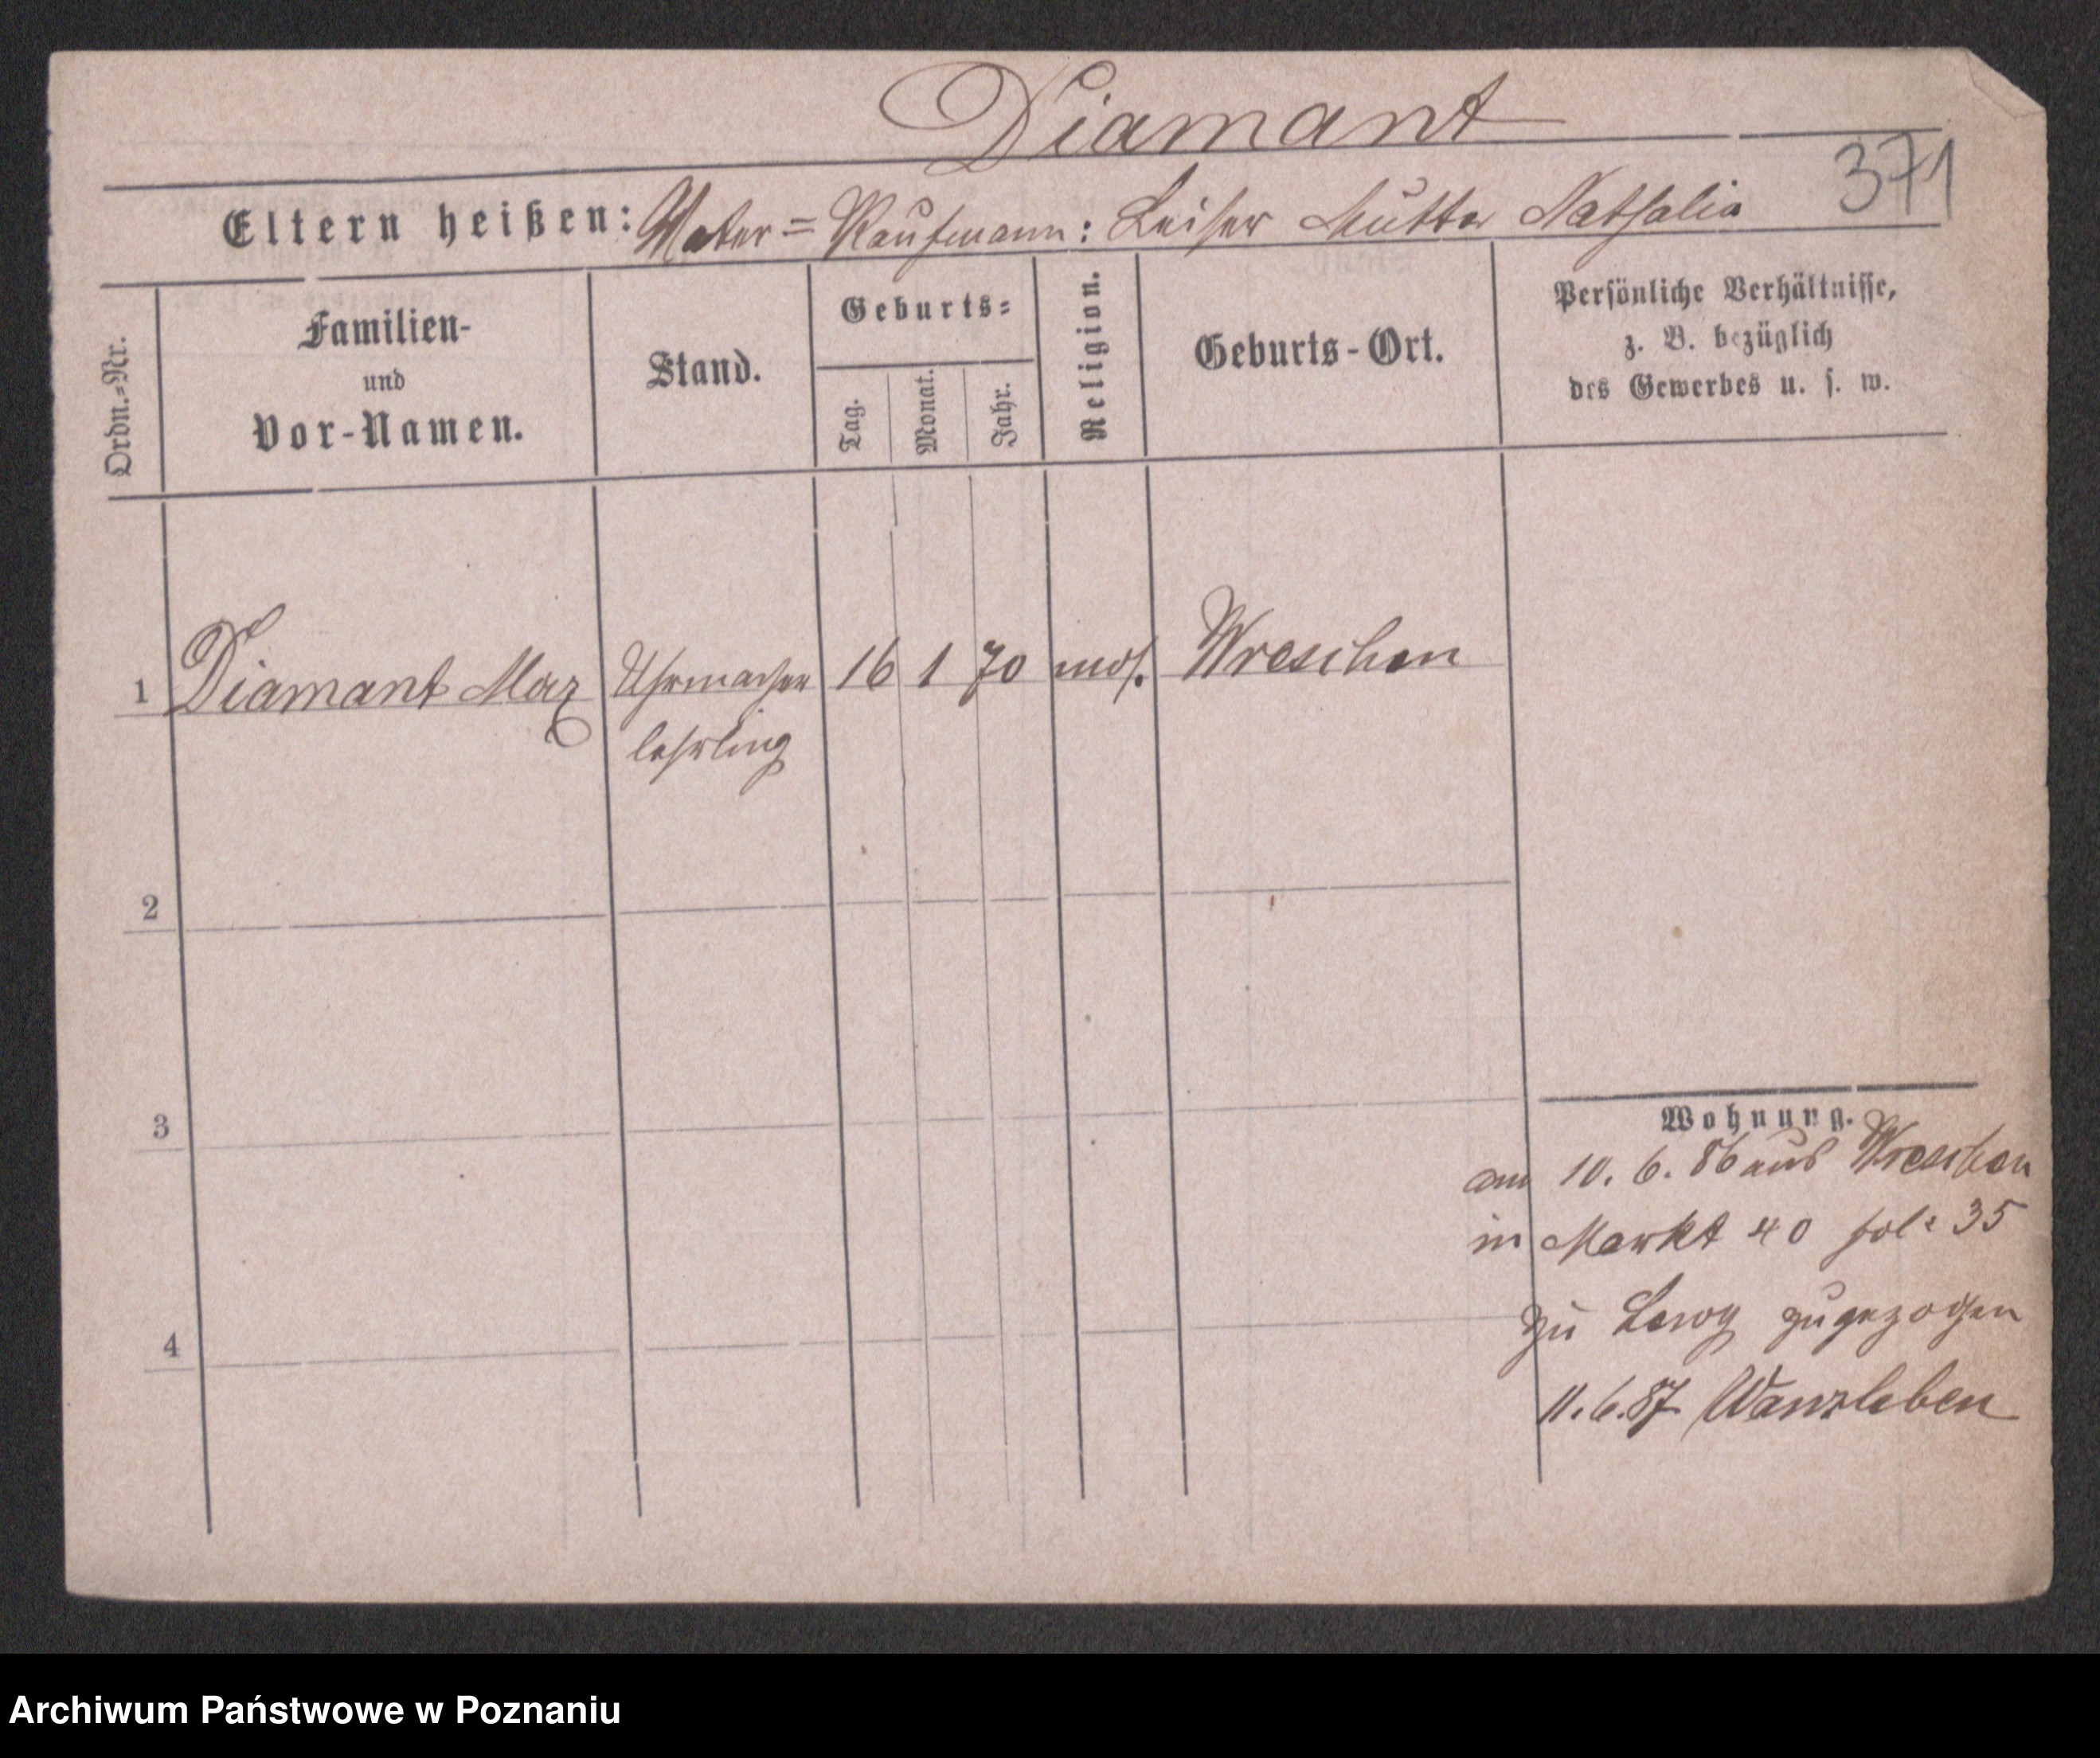 Diamant
371
Eltern heißen: Vater = Kaufmann: Leiser Mutter Nathalia
Ordn.=Nr.
Familien-
und
Vor-Namen.
Stand.
Geburts=
Tag.
Monat.
Jahr.
Religion.
Geburts-Ort.
Persönliche Verhältnisse,
z. B. bezüglich
des Gewerbes u. s. w.
1 Diamant Max Uhrmacher 16 1 70 mos. Wreschen
lehrling
2
3
4
Wohnung.
am 10. 6. 86 aus Wreschen
in Markt 40 fol: 35
zu Lewy zugezogen
11. 6. 87 Wanzleben
Archiwum Państwowe w Poznaniu